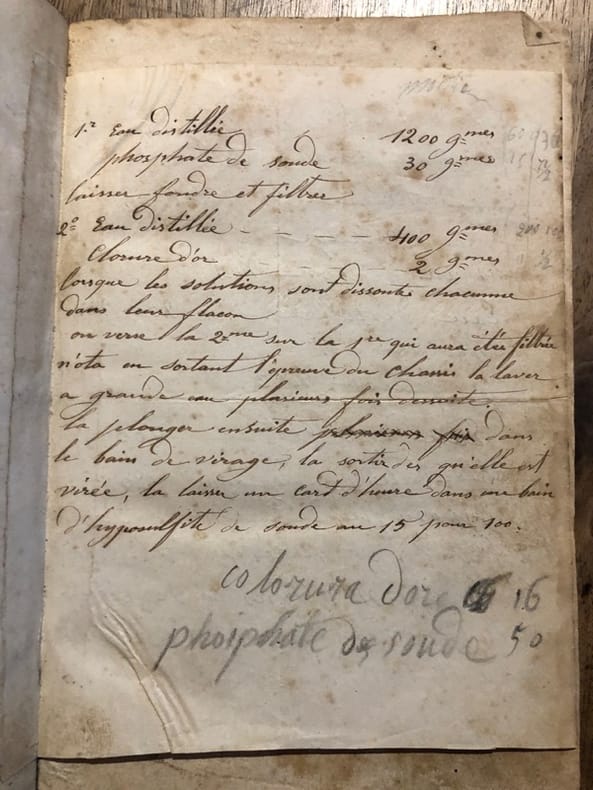 1.º Eau distillée 1200 g.mes
phosphate de soude 30 g.mes
laisser fondre et filtrer
2.º Eau distillée - - - - 400 g.mes
Clorure d'or - - - - 2 g.mes
lorsque les solutions sont dissoute chacunne
dans leur flacon
on verse la 2.me sur la 1.re qui aura étée filtrée
n'ota en sortant l'épreuve du chassis la laver
a grande eau plusieurs fois dessuite.
la plonger ensuite plusieurs fois dans
le bain de virage, la sortir dès qu'elle est
virée, la laisser un cart d'heure dans une bain
d'hyposulfite de soude au 15 pour 100.
colorura dore 16
phosphate de soude 50